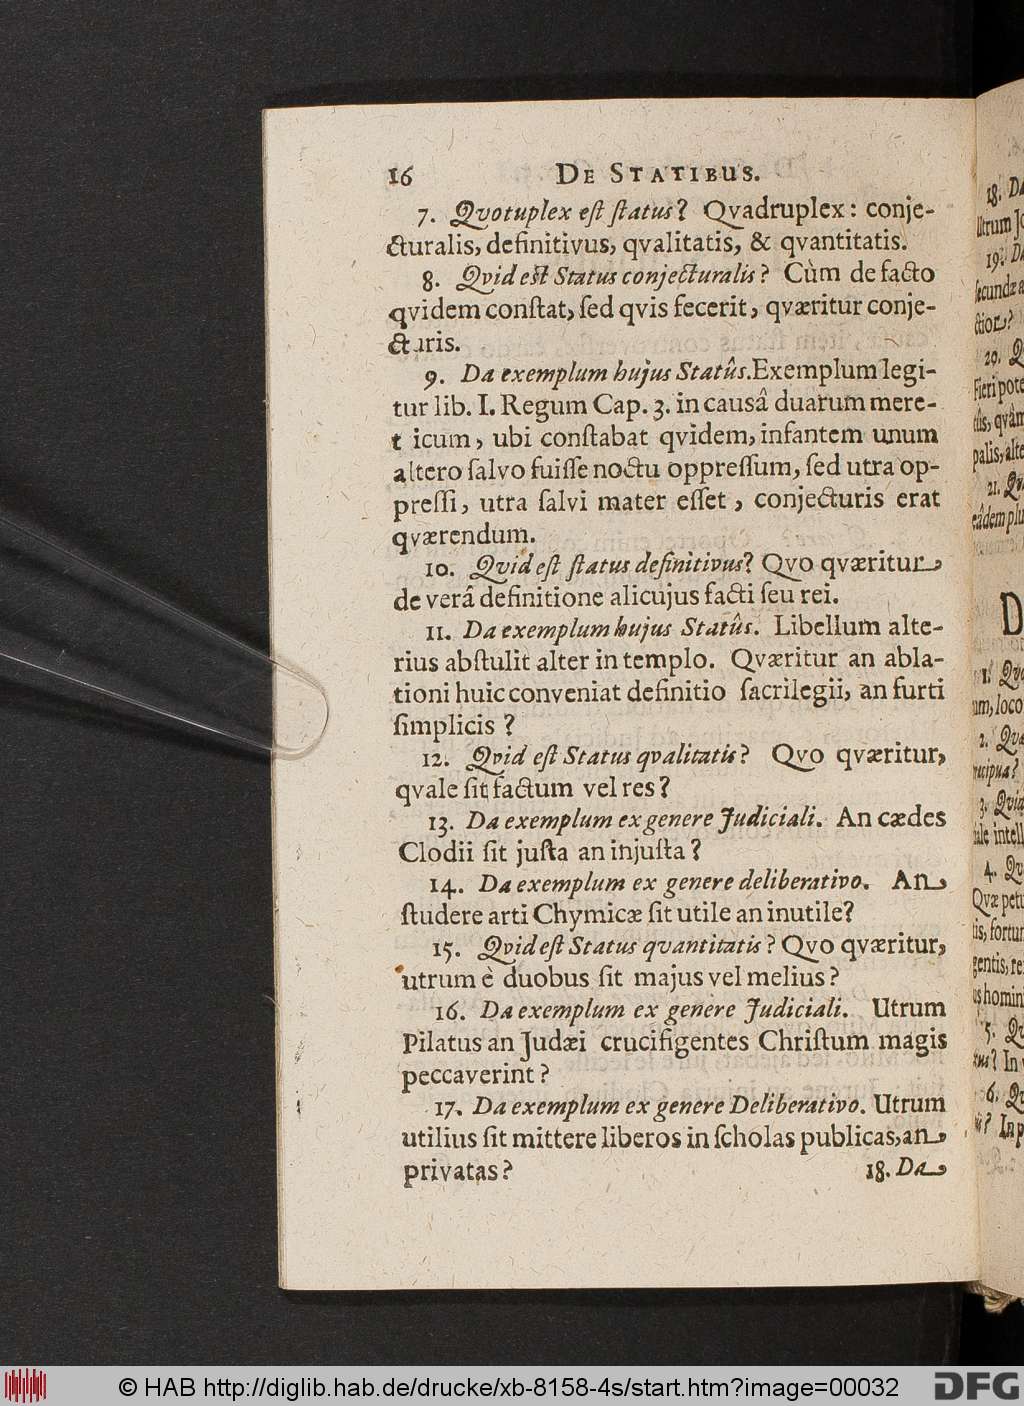 16 DE STATIBUS.
7. Qvotuplex eſt ſtatus? Qvadruplex: conje-
cturalis, definitivus, qvalitatis, & qvantitatis.
8. Qvid eſt Status conjecturalis? Cùm de facto
qvidem conſtat, ſed qvis fecerit, qværitur conje-
cturis.
9. Da exemplum hujus Statûs. Exemplum legi-
tur lib. I. Regum Cap. 3. in causâ duarum mere-
tricum, ubi conſtabat qvidem, infantem unum
altero ſalvo fuiſſe noctu oppreſſum, ſed utra op-
preſſi, utra ſalvi mater eſſet, conjecturis erat
qværendum.
10. Qvid eſt ſtatus definitivus? Qvo qværitur
de verâ definitione alicujus facti ſeu rei.
11. Da exemplum hujus Statûs. Libellum alte-
rius abſtulit alter in templo. Qværitur an abla-
tioni huic conveniat definitio ſacrilegii, an furti
ſimplicis?
12. Qvid eſt Status qvalitatis? Qvo qværitur,
qvale ſit factum vel res?
13. Da exemplum ex genere Judiciali. An cædes
Clodii ſit juſta an injuſta?
14. Da exemplum ex genere deliberativo. An
ſtudere arti Chymicæ ſit utile an inutile?
15. Qvid eſt Status qvantitatis? Qvo qværitur,
utrum è duobus ſit majus vel melius?
16. Da exemplum ex genere Judiciali. Utrum
Pilatus an Judæi crucifigentes Chriſtum magis
peccaverint?
17. Da exemplum ex genere Deliberativo. Utrum
utilius ſit mittere liberos in ſcholas publicas, an
privatas? 18. Da
18. Da
Utrum
19. Da
20.
Fieri pote
21.
1.
2.
3.
4.
Qvæ petu
5.
6.
© HAB http://diglib.hab.de/drucke/xb-8158-4s/start.htm?image=00032 DFG